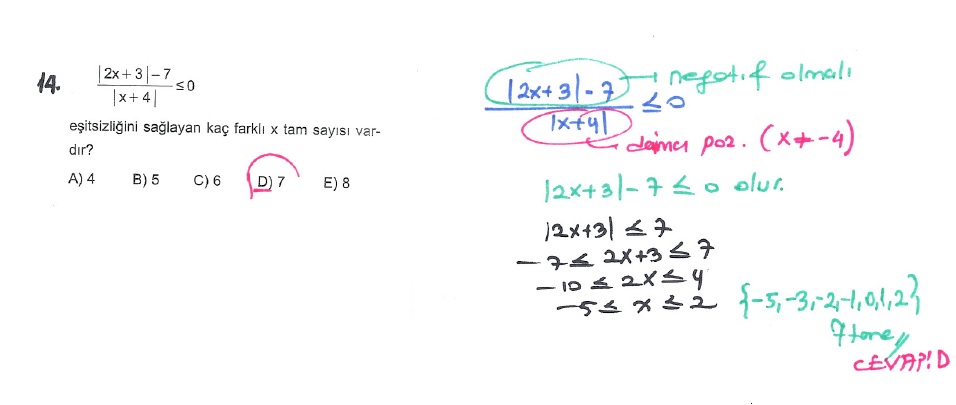 14. |2x+3|-7 / |x+4| ≤0
eşitsizliğini sağlayan kaç farklı x tam sayısı var-
dır?
A) 4 B) 5 C) 6 D) 7 E) 8
|2x+3|-7 / |x+4| ≤0
→ negatif olmalı
daima poz. (x≠-4)
|2x+3|-7 ≤ 0 olur.
|2x+3| ≤ 7
-7 ≤ 2x+3 ≤ 7
-10 ≤ 2x ≤ 4
-5 ≤ x ≤ 2 {-5,-3,-2,-1,0,1,2}
7 tane //
CEVAP!D